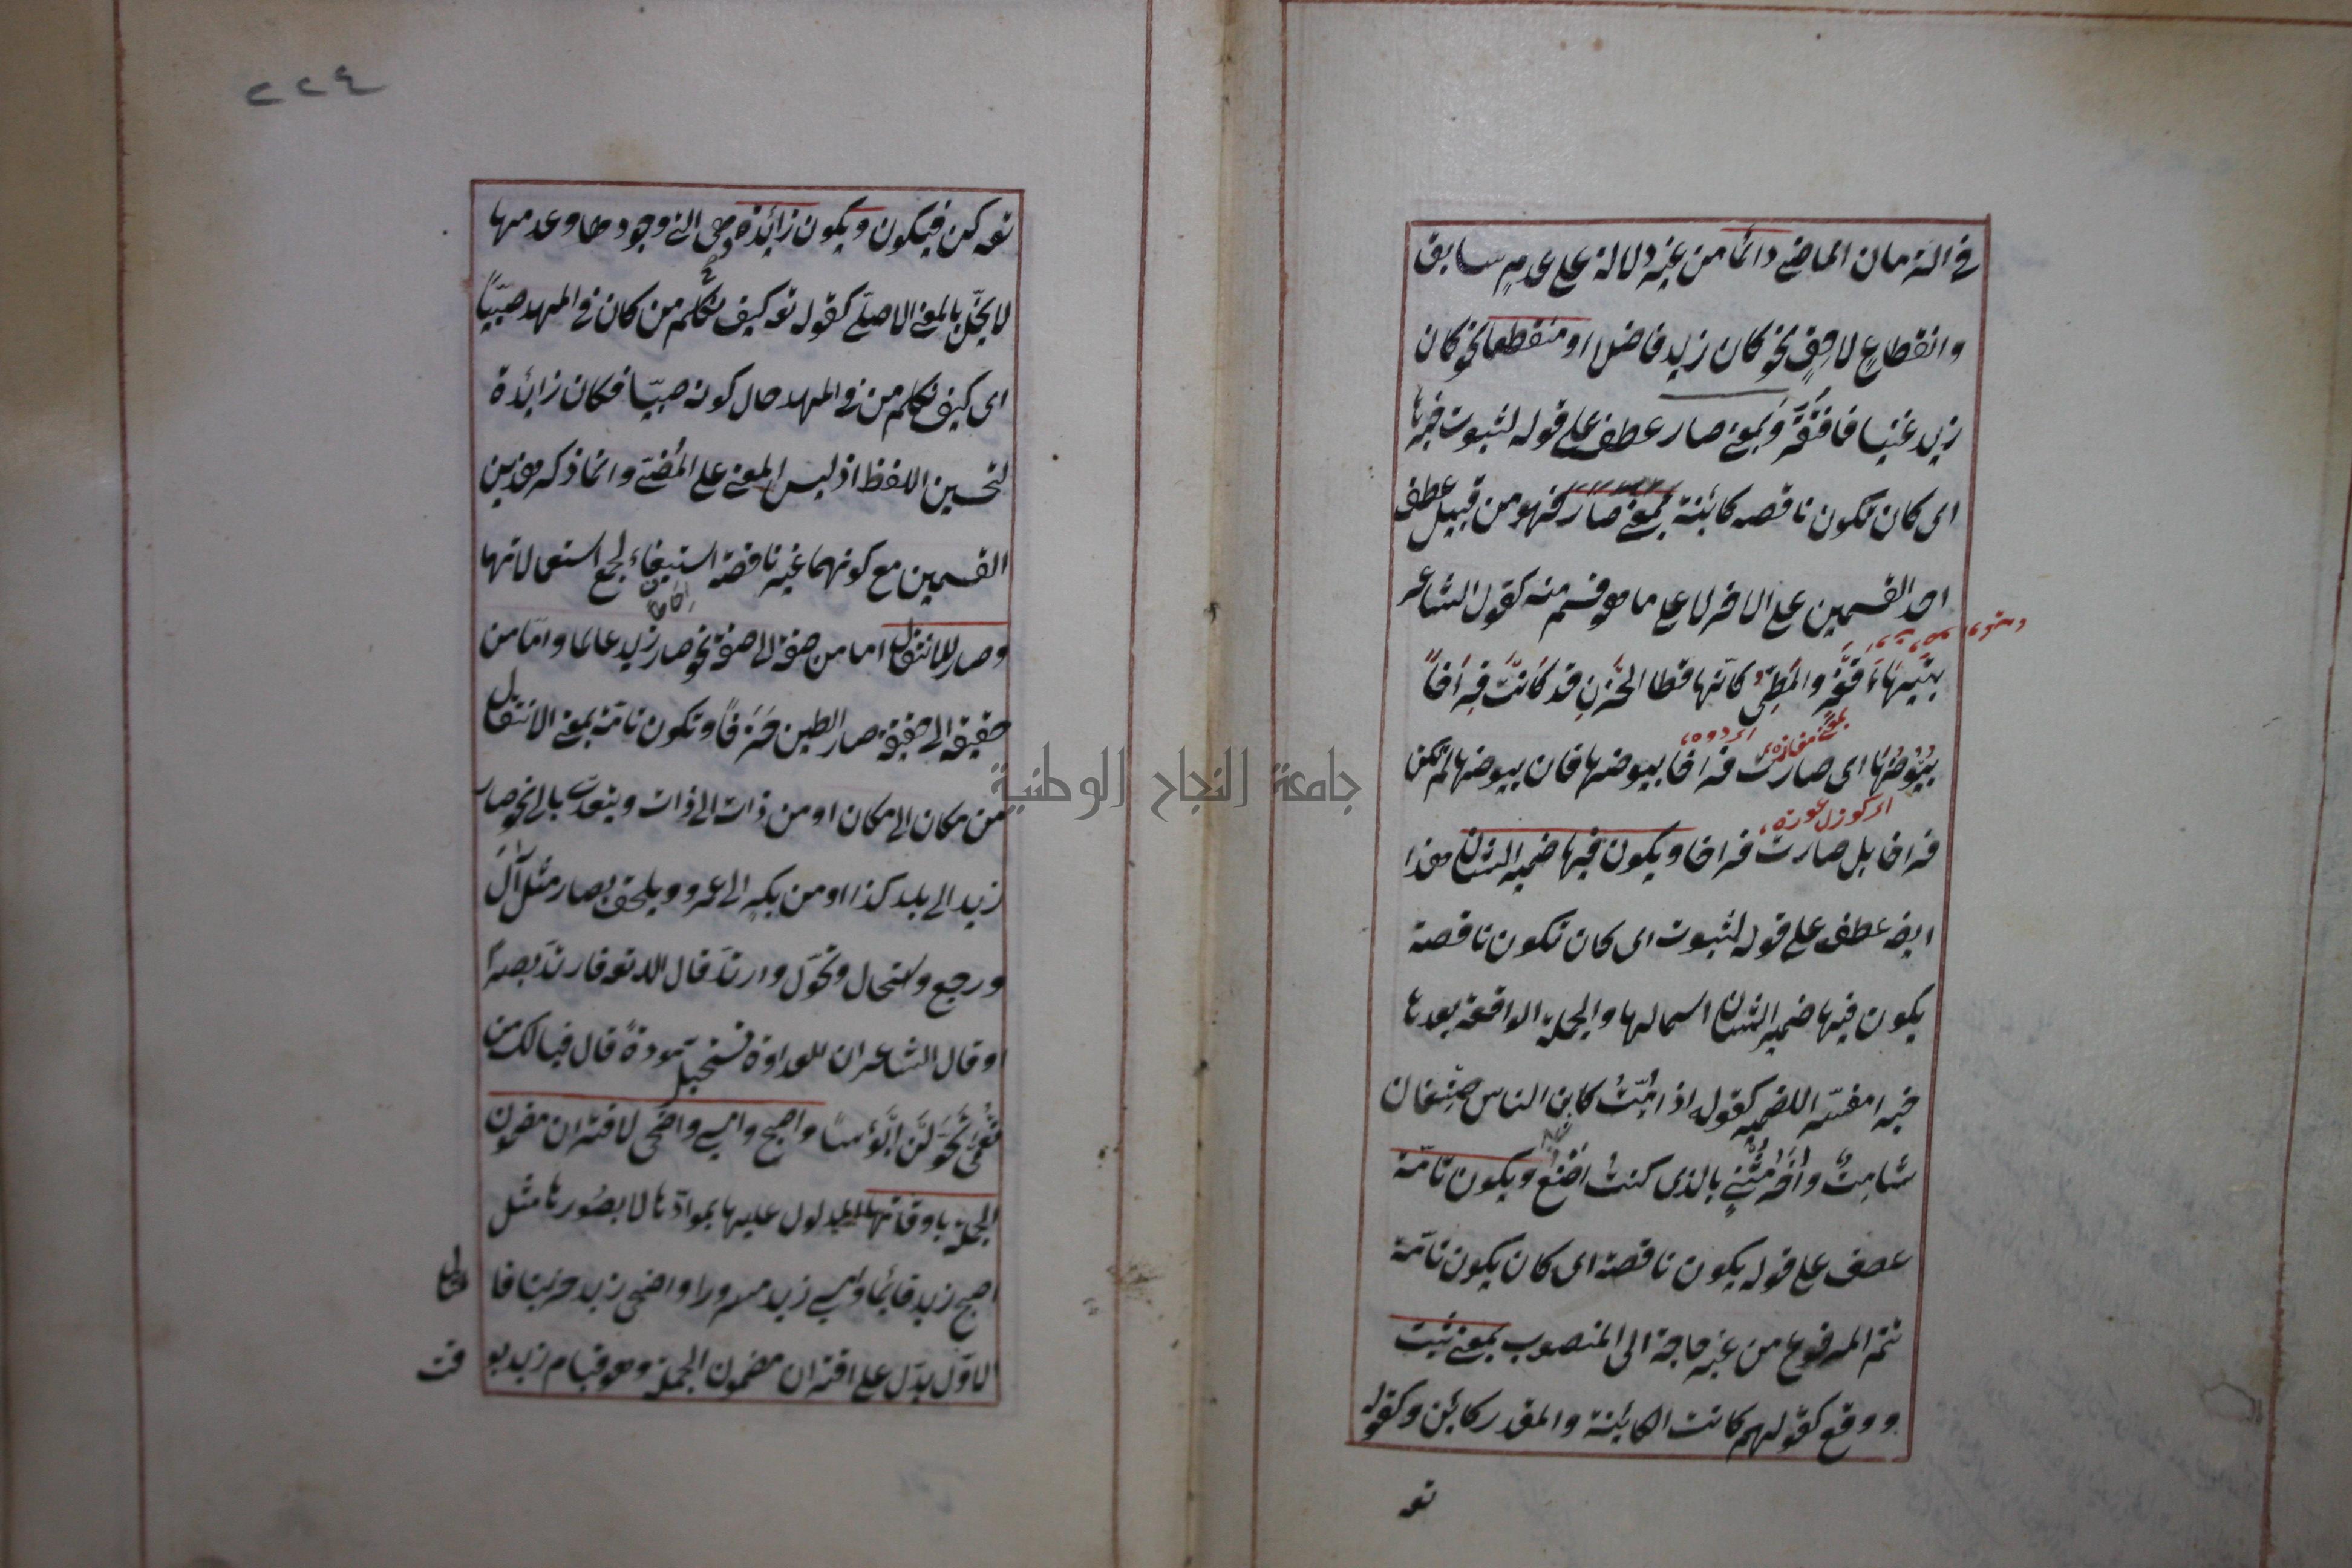 في الزمان الماضي دائما من غير دلالة على عدم سابق
وانقطاع لاحق نحو كان زيد فاضلا او منقطعا نحو كان
زيد غنيا فافتقر وبمعنى صار عطف على قوله لثبوت خبرها
اى كان تكون ناقصه كائنة بمعنى صار فهو من قبيل عطف
احد القسمين على الاخر لا على ما هو قسم منه كقول الشاعر
بتيهاء قفر والمطى كانها قطا الحزن قد كانت فراخا
بيوضها اى صارت فراخا بيوضها فان بيوضها لم تكن
فراخا بل صارت فراخا ويكون فيها ضمير الشان هذا
ايضا عطف على قوله لثبوت اى كان تكون ناقصة
يكون فيها ضمير الشان اسما لها والجملة الواقعة بعدها
خبرا مفسرا للضمير كقوله اذا مت كان الناس صنفان
شامت وآخر مثنٍ بالذى كنت اصنع ويكون تامة
عطف على قوله يكون ناقصة اى كان يكون تامة
تتم المرفوع من غير حاجة الى المنصوب بمعنى ثبت
ووقع كقولهم كانت الكائنة والمقدر كائن وكقوله
تعـ
٢٢٤
تعـ كن فيكون ويكون زائدة وهى التى وجودها وعدمها
لا يخل بالمعنى الاصلى كقوله تعـ كيف نكلم من كان في المهد صبيا
اى كيف نكلم من في المهد حال كونه صبيا فكان زائدة
لتحسين اللفظ اذ ليس المعنى على المضى وانما ذكر هذين
القسمين مع كونهما غير ناقصة استيفاء لجميع استعمالاتها
وصار للانتقال اما من صفة الى صفة نحو صار زيد عالما واما من
حقيقة الى حقيقة صار الطين خزفا وتكون تامة بمعنى الانتقال
من مكان الى مكان او من ذات الى ذات ويتعدى بالى نحو صار
زيد الى بلد كذا او من بكر الى عمرو ويلحق بصار مثل آل
ورجع واستحال وتحول وارتد قال الله تعـ فارتد بصيرا
وقال الشاعر ان العداوة تستحيل مودة قال فيالك من
نعمى تحولن ابؤسا واصبح وامسى واضحى لاقتران مضمون
الجملة باوقاتها المدلول عليها بموادها لا بصورها مثل
اصبح زيد قائما وامسى زيد مسرورا واضحى زيد حزينا فا
الاول يدل على اقتران مضمون الجملة وهو قيام زيد بو
قت
جامعة النجاح الوطنية